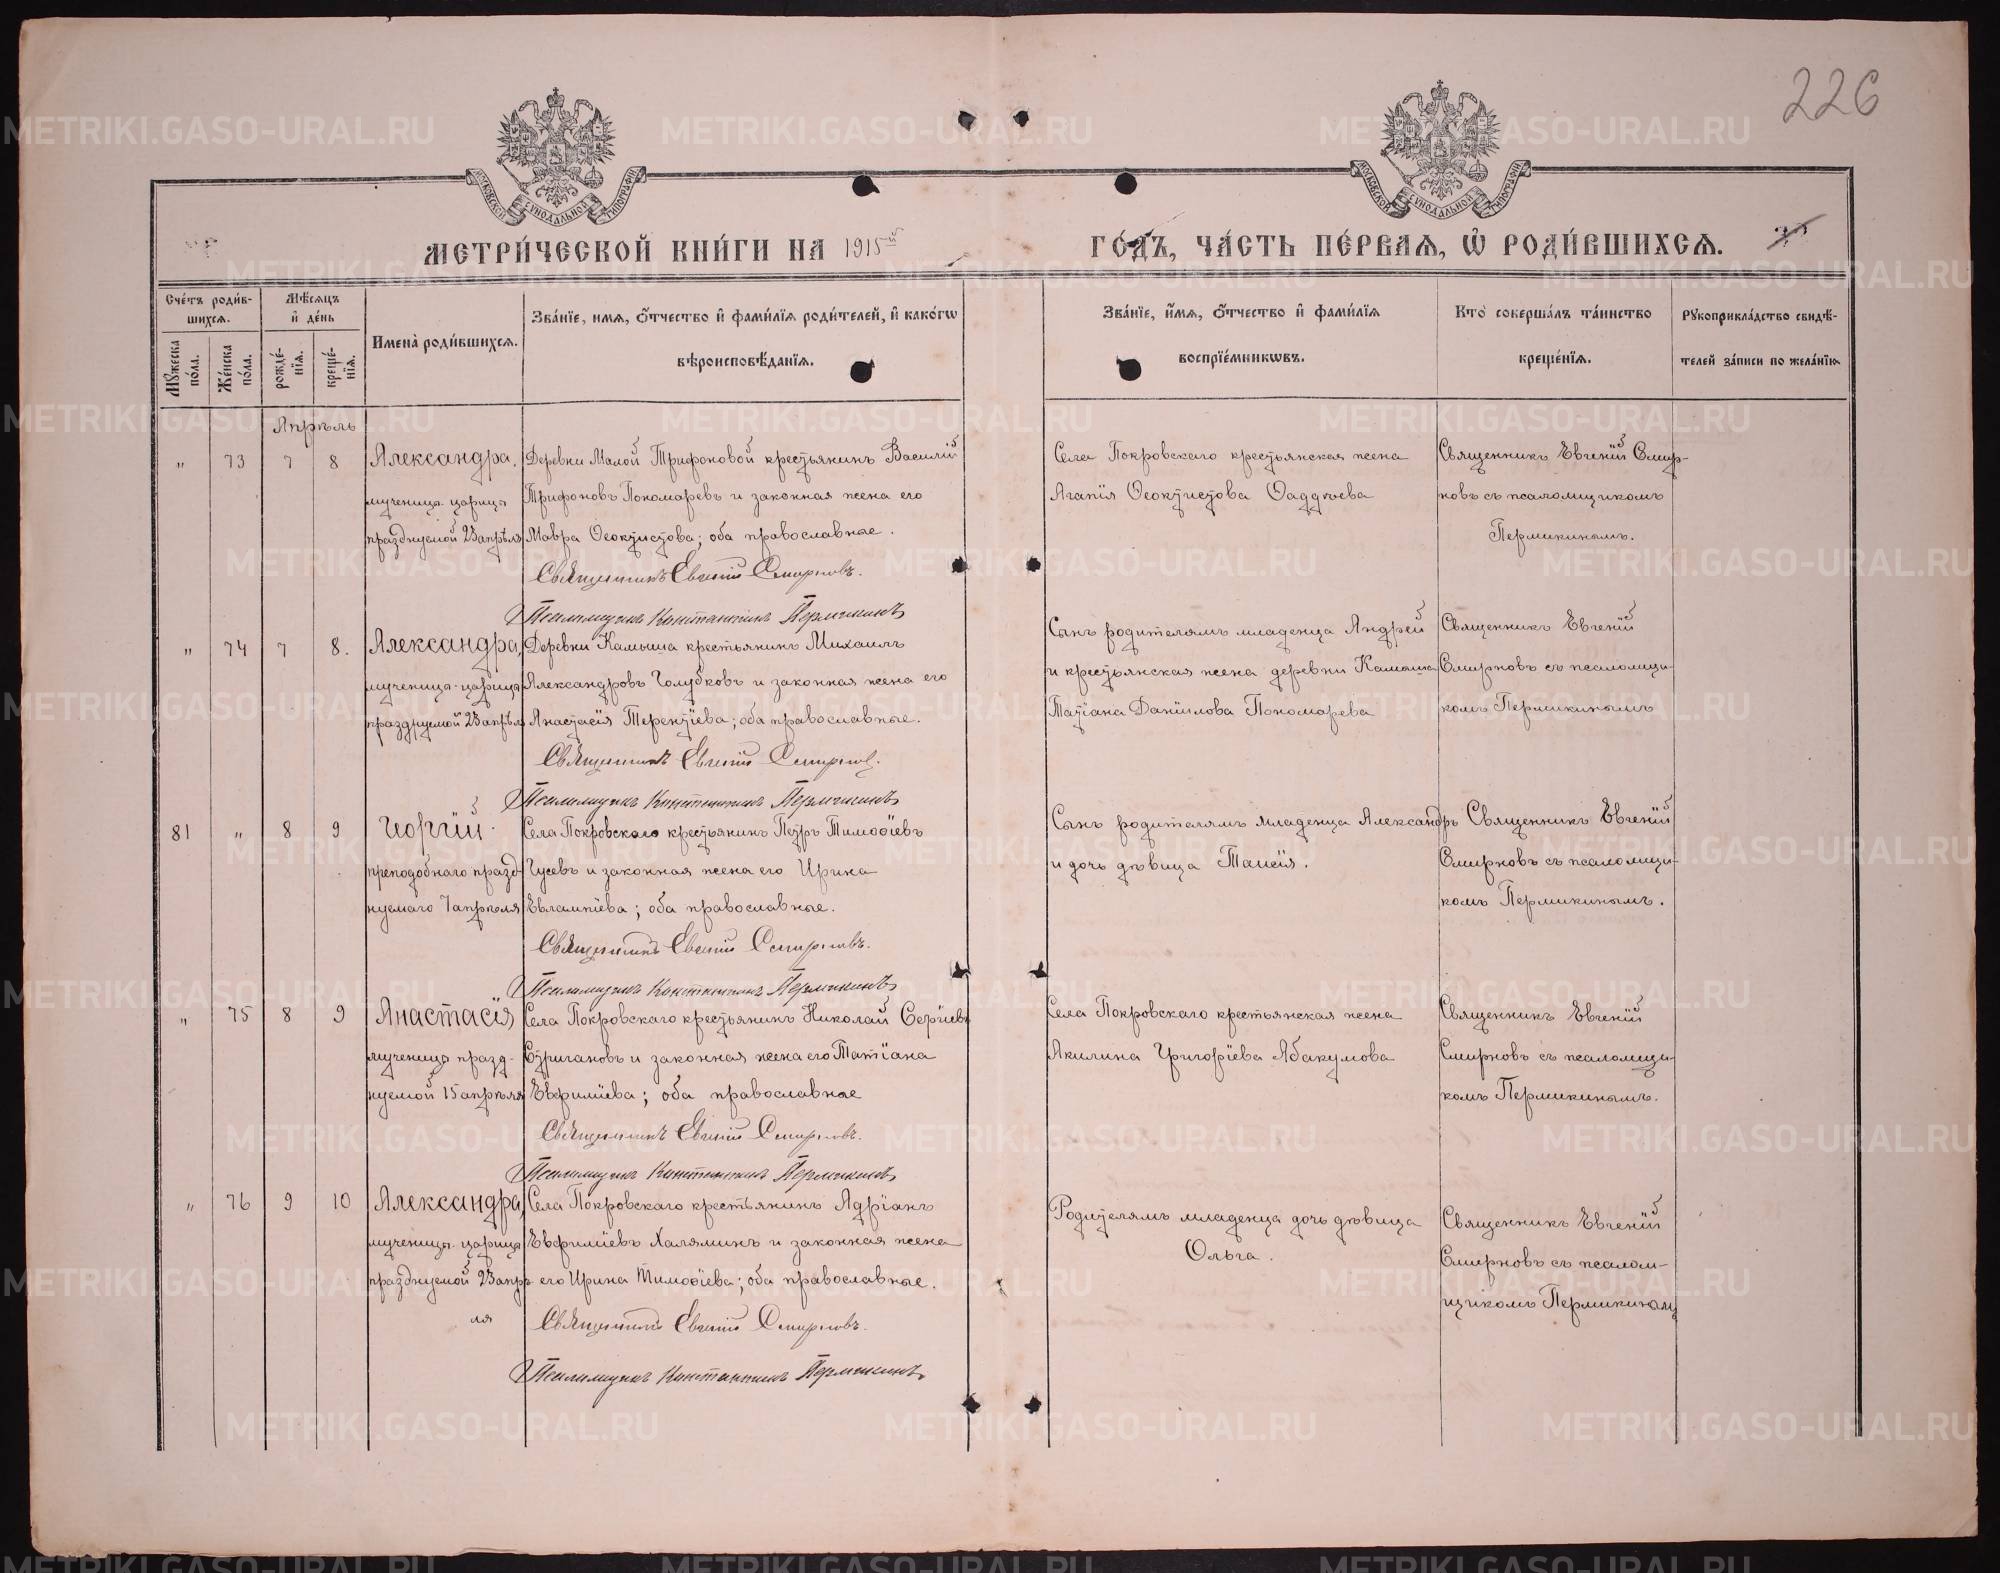 226
МОСКОВСКОЙ СѴНОДАЛЬНОЙ ТИПОГРАФІИ
МОСКОВСКОЙ СѴНОДАЛЬНОЙ ТИПОГРАФІИ
МЕТРИ́ЧЕСКОЙ КНИ́ГИ НА 1915й ГО́ДЪ, ЧА́СТЬ ПЕ́РВАЯ, Ѽ РОДИ́ВШИХСЯ.
Сче́тъ роди́в-
шихся.
Мꙋ́жеска по́ла.
Же́нска по́ла.
Мѣ́сяцъ
и҆ де́нь
рожде́-
нїя.
креще́-
нїя.
Имена̀ роди́вшихся.
Зва́нїе, имя, ѻ҆́тчество и҆ фами́лїя роди́телей, и҆ како́гѡ
вѣроисповѣ́данїя.
Зва́нїе, и҆́мя, ѻ҆́тчество и҆ фами́лїя
воспрїе́мникѡвъ.
Кто̀ соверша́лъ та́инство
креще́нїя.
Рꙋкоприкла́дство свидѣ́-
телей за́писи по жела́нїю
Апрѣль
" 73 7 8
Александра,
мученица царица
празднуемой 23 апрѣля
Деревни Малой Трифоновой крестьянинъ Василій
Трифоновъ Пономаревъ и законная жена его
Мавра Ѳеоктистова; оба православные.
Священникъ Евгеній Смирновъ.
Псаломщикъ Константинъ Пермикинъ
Села Покровскаго крестьянская жена
Агапія Ѳеоктистова Ѳаддѣева
Священникъ Евгеній Смир-
новъ съ псаломщикомъ
Пермикинымъ.
" 74 7 8.
Александра,
мученица-царица
празднуемой 23 апрѣля
Деревни Камыша крестьянинъ Михаилъ
Александровъ Голубковъ и законная жена его
Анастасія Терентіева; оба православные.
Священникъ Евгеній Смирновъ.
Псаломщикъ Константинъ Пермикинъ
Сынъ родителямъ младенца Андрей
и крестьянская жена деревни Камыша
Татіана Даниілова Пономарева
Священникъ Евгеній
Смирновъ съ псаломщи-
комъ Пермикинымъ
81 " 8 9
Георгій
преподобнаго празд-
нуемаго 7 апрѣля
Села Покровскаго крестьянинъ Петръ Тимоѳіевъ
Гусевъ и законная жена его Ирина
Евлампіева; оба православные.
Священникъ Евгеній Смирновъ.
Псаломщикъ Константинъ Пермикинъ
Сынъ родителямъ младенца Александръ
и дочь дѣвица Таисія.
Священникъ Евгеній
Смирновъ съ псаломщи-
комъ Пермикинымъ.
" 75 8 9
Анастасія
мученица празд-
нуемой 15 апрѣля
Села Покровскаго крестьянинъ Николай Сергіевъ
Стригановъ и законная жена его Татіана
Евфиміева; оба православные
Священникъ Евгеній Смирновъ.
Псаломщикъ Константинъ Пермикинъ
Села Покровскаго крестьянская жена
Акилина Григоріева Абакумова
Священникъ Евгеній
Смирновъ съ псаломщи-
комъ Пермикинымъ.
" 76 9 10
Александра,
мученица царица
празднуемой 23 апрѣ-
ля
Села Покровскаго крестьянинъ Адріанъ
Евфиміевъ Халяминъ и законная жена
его Ирина Тимоѳіева; оба православные.
Священникъ Евгеній Смирновъ.
Псаломщикъ Константинъ Пермикинъ
Родителямъ младенца дочь дѣвица
Ольга.
Священникъ Евгеній
Смирновъ съ псалом-
щикомъ Пермикинымъ
METRIKI.GASO-URAL.RU